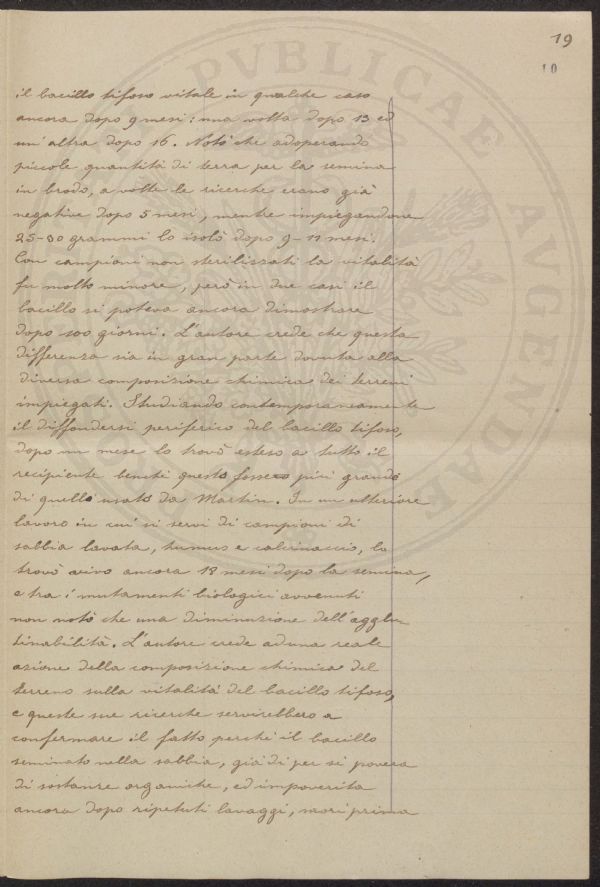 19
10
PVBLICAE AVGENDAE
il bacillo tifoso vitale in qualche caso
ancora dopo 9 mesi: una volta dopo 13 ed
un'altra dopo 16. Notò che adoperando
piccole quantità di terra per la semina
in brodo, a volte le ricerche erano già
negative dopo 5 mesi, mentre impiegandone
25-30 grammi lo isolò dopo 9-11 mesi.
Con campioni non sterilizzati la vitalità
fu molto minore, però in due casi il
bacillo si poteva ancora dimostrare
dopo 100 giorni. L'autore crede che questa
differenza sia in gran parte dovuta alla
diversa composizione chimica dei terreni
impiegati. Studiando contemporaneamente
il diffondersi periferico del bacillo tifoso,
dopo un mese lo trovò esteso a tutto il
recipiente benchè questo fosse più grande
di quello usato da Martin. In un ulteriore
lavoro in cui si servì di campioni di
sabbia lavata, humus e calcinaccio, lo
trovò vivo ancora 18 mesi dopo la semina,
e tra i mutamenti biologici avvenuti
non notò che una diminuzione dell'agglu
tinabilità. L'autore crede ad una reale
azione della composizione chimica del
terreno sulla vitalità del bacillo tifoso,
e queste sue ricerche servirebbero a
confermare il fatto perchè il bacillo
seminato nella sabbia, già di per sè povera
di sostanze organiche, ed impoverita
ancora dopo ripetuti lavaggi, morì prima